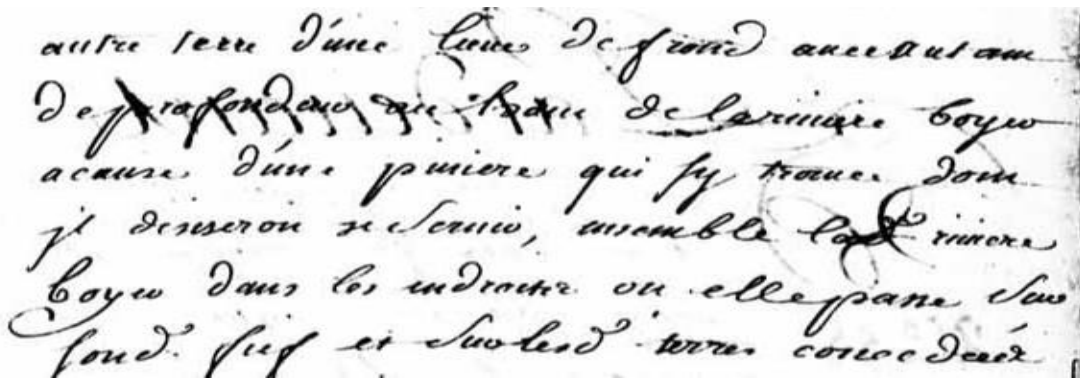 autre terre d'une lieue de frond avec autam
de profondeur au trave de la riviere boyer
a cause d'une piniere qui sy trouve dom
jl desireron se servir, ensemble lad riviere
boyer dans les endroits ou elle passe sur
fond. fief et sur lesd terres concedeés